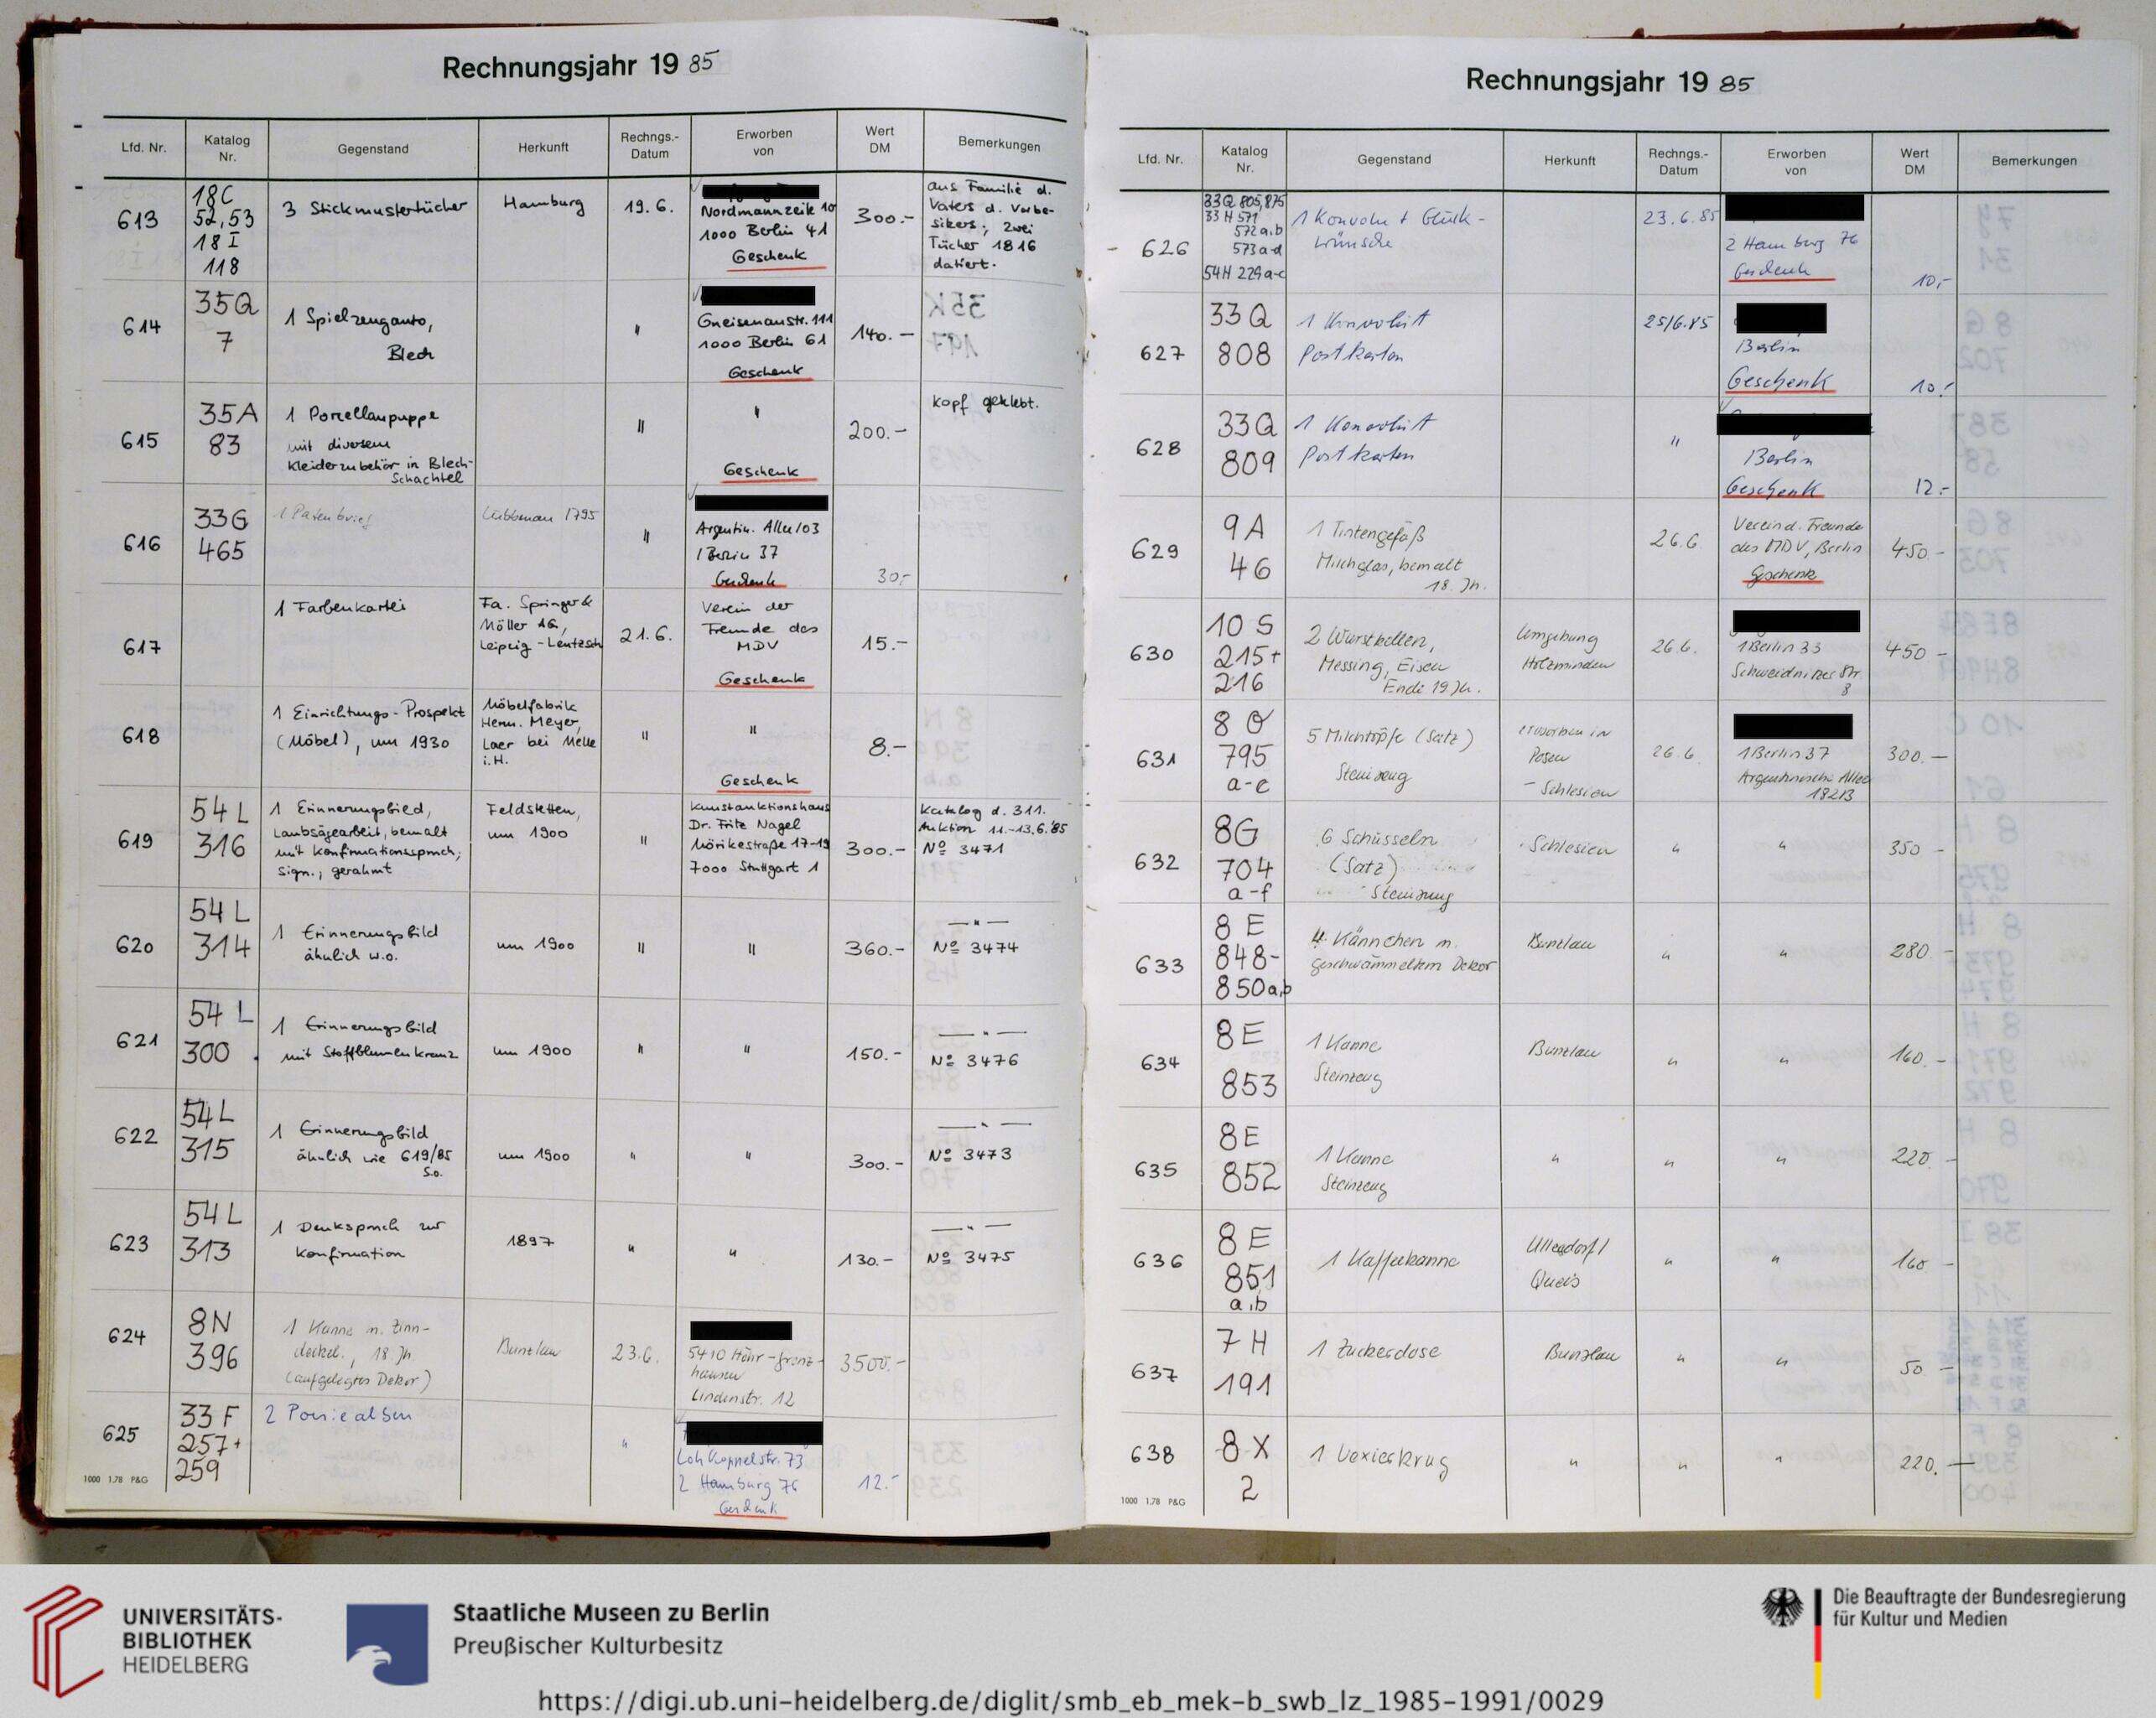 Rechnungsjahr 19 85
Lfd. Nr. Katalog Nr. Gegenstand Herkunft Rechngs.-Datum Erworben von Wert DM Bemerkungen
613
18C
52,53
18 I
118
3 Stickmustertücher
Hamburg
19. 6.
Nordmannzeile 10
1000 Berlin 41
Geschenk
300.-
aus Familie d.
Vaters d. Vorbe-
sitzers; zwei
Tücher 1816
datiert.
614
35Q
7
1 Spielzeugauto,
Blech
"
Gneisenaustr. 111
1000 Berlin 61
Geschenk
140.-
615
35A
83
1 Porzellanpuppe
mit diversem
Kleiderzubehör in Blech-
schachtel
"
"
Geschenk
200.-
Kopf geklebt.
616
33G
465
1 Patenbrief
1795
"
Argentin. Allee 103
1 Berlin 37
Geschenk
30.-
617
1 Farbenkartei
Fa. Springer &
Möller AG,
Leipzig-Leutzsch
21. 6.
Verein der
Freunde des
MDV
Geschenk
15.-
618
1 Einrichtungs-Prospekt
(Möbel), um 1930
Möbelfabrik
Herm. Meyer,
Laer bei Melle
i.H.
"
"
Geschenk
8.-
619
54 L
316
1 Erinnerungsbild,
Laubsägearbeit, bemalt
mit Konfirmationsspruch;
sign.; gerahmt
Feldstetten,
um 1900
"
Kunstauktionshaus
Dr. Fritz Nagel
Mörikestraße 17-19
7000 Stuttgart 1
300.-
Katalog d. 311.
Auktion 11.-13.6.'85
Nº 3471
620
54 L
314
1 Erinnerungsbild
ähnlich w.o.
um 1900
"
"
360.-
— " —
Nº 3474
621
54 L
300
1 Erinnerungsbild
mit Stoffblumenkranz
um 1900
"
"
150.-
— " —
Nº 3476
622
54L
315
1 Erinnerungsbild
ähnlich wie 619/85
s.o.
um 1900
"
"
300.-
— " —
Nº 3473
623
54L
313
1 Denkspruch zur
Konfirmation
1897
"
"
130.-
— " —
Nº 3475
624
8N
396
1 Kanne m. Zinn-
deckel, 18. Jh.
(aufgelegtes Dekor)
Bunzlau
23.6.
5410 Höhr-Grenz-
hausen
Lindenstr. 12
3500.-
625
33 F
257+
259
2 Poesiealben
"
Lohkoppelstr. 73
2 Hamburg 76
Geschenk
12.-
1000 1.78 P&G
Rechnungsjahr 19 85
Lfd. Nr. Katalog Nr. Gegenstand Herkunft Rechngs.-Datum Erworben von Wert DM Bemerkungen
626
33Q 805,875
33 H 571
572 a,b
573 a-d
54H 229 a-c
1 Konvolut Glück-
wünsche
23.6.85
2 Hamburg 76
Geschenk
10,-
627
33 Q
808
1 Konvolut
Postkarten
25/6.85
Berlin
Geschenk
10.-
628
33Q
809
1 Konvolut
Postkarten
"
Berlin
Geschenk
12.-
629
9A
46
1 Tintengefäß
Milchglas, bemalt
18. Jh.
26.6.
Verein d. Freunde
des MDV, Berlin
Geschenk
450.-
630
10 S
215+
216
2 Wurstkellen,
Messing, Eisen
Ende 19. Jh.
Umgebung
Holzminden
26.6.
1 Berlin 33
Schweidnitzer Str.
8
450 -
631
8 O
795
a-e
5 Milchtöpfe (Satz)
Steinzeug
erworben in
Posen
- Schlesien
26.6.
1 Berlin 37
Argentinische Allee
182B
300.—
632
8G
704
a-f
6 Schüsseln
(Satz)
Steinzeug
Schlesien
"
"
350 -
633
8 E
848-
850a,b
4 Kännchen m.
geschwämmeltem Dekor
Bunzlau
"
"
280.-
634
8E
853
1 Kanne
Steinzeug
Bunzlau
"
"
160.-
635
8E
852
1 Kanne
Steinzeug
"
"
"
220.-
636
8 E
851
a,b
1 Kaffeekanne
Ullersdorf/
Queis
"
"
160 -
637
7 H
191
1 Zuckerdose
Bunzlau
"
"
50 -
638
8 X
2
1 Vexierkrug
"
"
"
220.—
1000 1.78 P&G
UNIVERSITÄTS-
BIBLIOTHEK
HEIDELBERG
Staatliche Museen zu Berlin
Preußischer Kulturbesitz
Die Beauftragte der Bundesregierung
für Kultur und Medien
https://digi.ub.uni-heidelberg.de/diglit/smb_eb_mek-b_swb_lz_1985-1991/0029